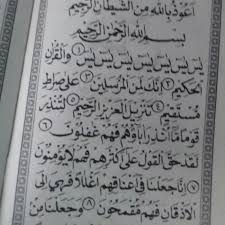 اَعُوْذُ بِاللهِ مِنَ الشَّيْطَانِ الرَّجِيْمِ
بِسْمِ اللهِ الرَّحْمٰنِ الرَّحِيْمِ
يٰسٓ يٰسٓ يٰسٓ يٰسٓ يٰسٓ يٰسٓ يٰسٓ ١ وَالْقُرْاٰنِ
الْحَكِيْمِ ٢ اِنَّكَ لَمِنَ الْمُرْسَلِيْنَ ٣ عَلٰى صِرَاطٍ
مُسْتَقِيْمٍ ٤ تَنْزِيْلَ الْعَزِيْزِ الرَّحِيْمِ ٥ لِتُنْذِرَ
قَوْمًا مَا اُنْذِرَ اٰبَاؤُهُمْ فَهُمْ غٰفِلُوْنَ ٦
لَقَدْ حَقَّ الْقَوْلُ عَلٰى اَكْثَرِهِمْ فَهُمْ لَا يُؤْمِنُوْنَ
٧ اِنَّا جَعَلْنَا فِيْ اَعْنَاقِهِمْ اَغْلَالًا فَهِيَ اِلَى
الْاَذْقَانِ فَهُمْ مُقْمَحُوْنَ ٨ وَجَعَلْنَا مِنْ